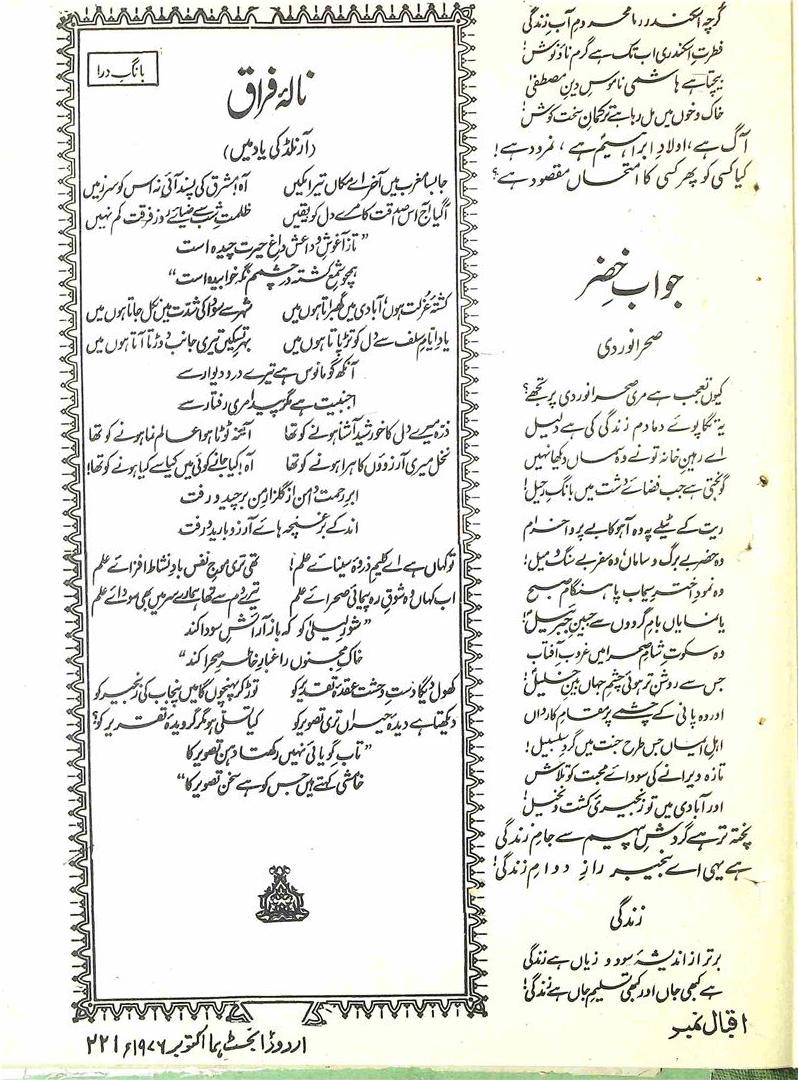 گرچہ اسکندر رہا محرومِ آبِ زندگی
فطرتِ اسکندری اب تک ہے گرمِ ناؤ نوش!
بیچتا ہے ہاشمی ناموسِ دینِ مصطفیٰؐ
خاک و خوں میں مل رہا ہے ترکمانِ سخت کوش!
آگ ہے، اولادِ ابراہیمؑ ہے، نمرود ہے!
کیا کسی کو پھر کسی کا امتحاں مقصود ہے؟
جوابِ خضر
صحرا نوردی
کیوں تعجب ہے مری صحرا نوردی پر تجھے؟
یہ تگاپوئے دمادم زندگی کی ہے دلیل
اے رہینِ خانہ تو نے وہ سماں دیکھا نہیں
گونجتی ہے جب فضائے دشت میں بانگِ رحیل!
ریت کے ٹیلے پہ وہ آہو کا بے پروا خرام
وہ حضر بے برگ و ساماں، وہ سفر بے سنگ و میل!
وہ نمودِ اخترِ سیماب پا ہنگامِ صبح
یا نمایاں بامِ گردوں سے جبینِ جبرئیلؑ!
وہ سکوتِ شامِ صحرا میں غروبِ آفتاب
جس سے روشن تر ہوئی چشمِ جہاں بینِ خلیلؑ!
اور وہ پانی کے چشمے پر مقامِ کارواں
اہلِ ایماں جس طرح جنت میں گردِ سلسبیل!
تازہ ویرانے کی سودائے محبت کو تلاش
اور آبادی میں تو زنجیریِ کشت و نخیل!
پختہ تر ہے گردشِ پیہم سے جامِ زندگی
ہے یہی اے بے خبر رازِ دوامِ زندگی!
زندگی
برتر از اندیشۂ سود و زیاں ہے زندگی
ہے کبھی جاں اور کبھی تسلیمِ جاں ہے زندگی!
اقبال نمبر
بانگِ درا
نالۂ فراق
(آرنلڈ کی یاد میں)
جا بسا مغرب میں آخر اے مکاں تیرا مکیں آہ! مشرق کی پسند آئی نہ اس کو سرزمیں
آگیا آج اس صداقت کا مرے دل کو یقیں ظلمتِ شب سے ضیائے روزِ فرقت کم نہیں
"تا ز آغوشِ وداعش داغِ حیرت چیدہ است
ہمچو شمعِ کشتہ در چشمم نگہ خوابیدہ است"
کشتۂ عزلت ہوں، آبادی میں گھبراتا ہوں میں شہر سے سودا کی شدت میں نکل جاتا ہوں میں
یادِ ایامِ سلف سے دل کو تڑپاتا ہوں میں بہرِ تسکیں تیری جانب دوڑتا آتا ہوں میں
آنکھ گو مانوس ہے تیرے در و دیوار سے
اجنبیت ہے مگر پیدا مری رفتار سے
ذرّہ میرے دل کا خورشید آشنا ہونے کو تھا آئنہ ٹوٹا ہوا عالم نما ہونے کو تھا
نخل میری آرزوؤں کا ہرا ہونے کو تھا آہ! کیا جانے کوئی میں کیا سے کیا ہونے کو تھا!
ابرِ رحمت دامن از گلزارِ من برچید و رفت
اندکے بر غنچہ ہائے آرزو بارید و رفت
تو کہاں ہے اے کلیمِ ذروۂ سینائے علم! تھی تری موجِ نفس بادِ نشاط افزائے علم
اب کہاں وہ شوقِ رہ پیمائیِ صحرائے علم تیرے دم سے تھا ہمارے سر میں بھی سودائے علم
"شورِ لیلیٰ کو کہ باز آرائشِ سودا کند
خاکِ مجنوں را غبارِ خاطرِ صحرا کند"
کھول دے گا دستِ وحشت عقدۂ تقدیر کو توڑ کر پہنچوں گا میں پنجاب کی زنجیر کو
دیکھتا ہے دیدۂ حیراں تری تصویر کو کیا تسلی ہو مگر گرویدۂ تقریر کو؟
"تابِ گویائی نہیں رکھتا دہن تصویر کا
خامشی کہتے ہیں جس کو ہے سخن تصویر کا"
اردو ڈائجسٹ ہما اکتوبر ۱۹۷۶ء ۲۲۱